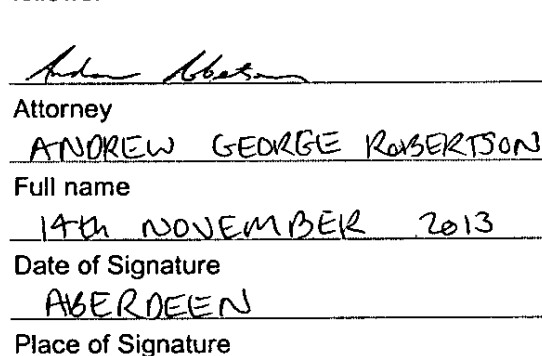 Attorney
ANDREW GEORGE ROBERTSON
Full name
14th NOVEMBER 2013
Date of Signature
ABERDEEN
Place of Signature